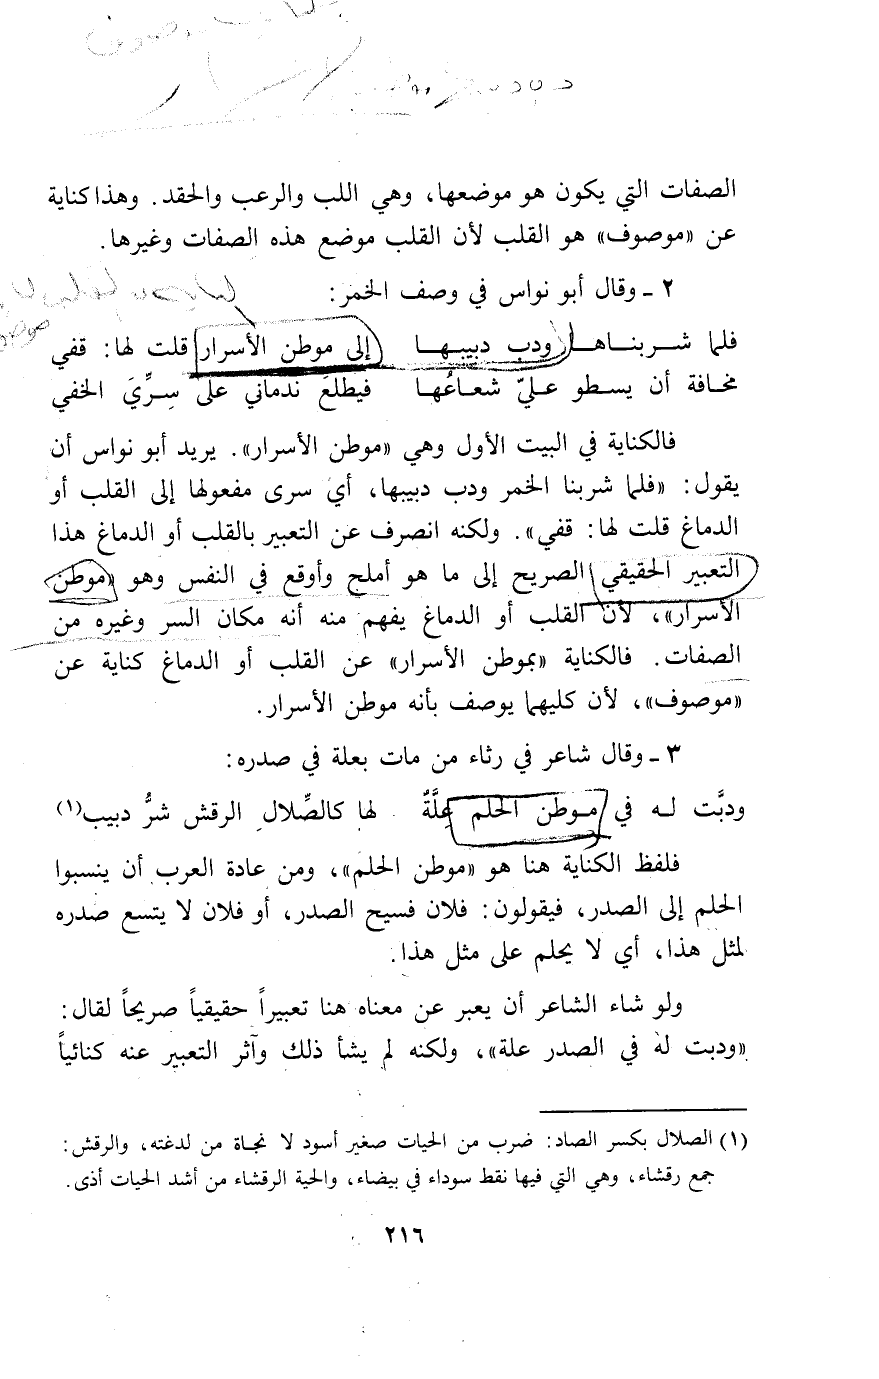 الصفات التي يكون هو موضعها، وهي اللب والرعب والحقد. وهذا كناية
عن «موصوف» هو القلب لأن القلب موضع هذه الصفات وغيرها.
٢ ـ وقال أبو نواس في وصف الخمر:
فلما شربناها ودب دبيبها إلى موطن الأسرار قلت لها: قفي
مخافة أن يسطو عليّ شعاعُها فيطلعَ ندماني على سِرِّيَ الخفي
فالكناية في البيت الأول وهي «موطن الأسرار». يريد أبو نواس أن
يقول: «فلما شربنا الخمر ودب دبيبها، أي سرى مفعولها إلى القلب أو
الدماغ قلت لها: قفي». ولكنه انصرف عن التعبير بالقلب أو الدماغ هذا
التعبير الحقيقي الصريح إلى ما هو أملح وأوقع في النفس وهو «موطن
الأسرار»، لأن القلب أو الدماغ يفهم منه أنه مكان السر وغيره من
الصفات. فالكناية «بموطن الأسرار» عن القلب أو الدماغ كناية عن
«موصوف»، لأن كليهما يوصف بأنه موطن الأسرار.
٣ ـ وقال شاعر في رثاء من مات بعلة في صدره:
ودبَّت له في موطن الحلم عِلَّةٌ لها كالصِّلال الرقش شرُّ دبيب(١)
فلفظ الكناية هنا هو «موطن الحلم»، ومن عادة العرب أن ينسبوا
الحلم إلى الصدر، فيقولون: فلان فسيح الصدر، أو فلان لا يتسع صدره
لمثل هذا، أي لا يحلم على مثل هذا.
ولو شاء الشاعر أن يعبر عن معناه هنا تعبيراً حقيقياً صريحاً لقال:
«ودبت له في الصدر علة»، ولكنه لم يشأ ذلك وآثر التعبير عنه كنائياً
(١) الصلال بكسر الصاد: ضرب من الحيات صغير أسود لا نجاة من لدغته، والرقش:
جمع رقشاء، وهي التي فيها نقط سوداء في بيضاء، والحية الرقشاء من أشد الحيات أذى.
٢١٦